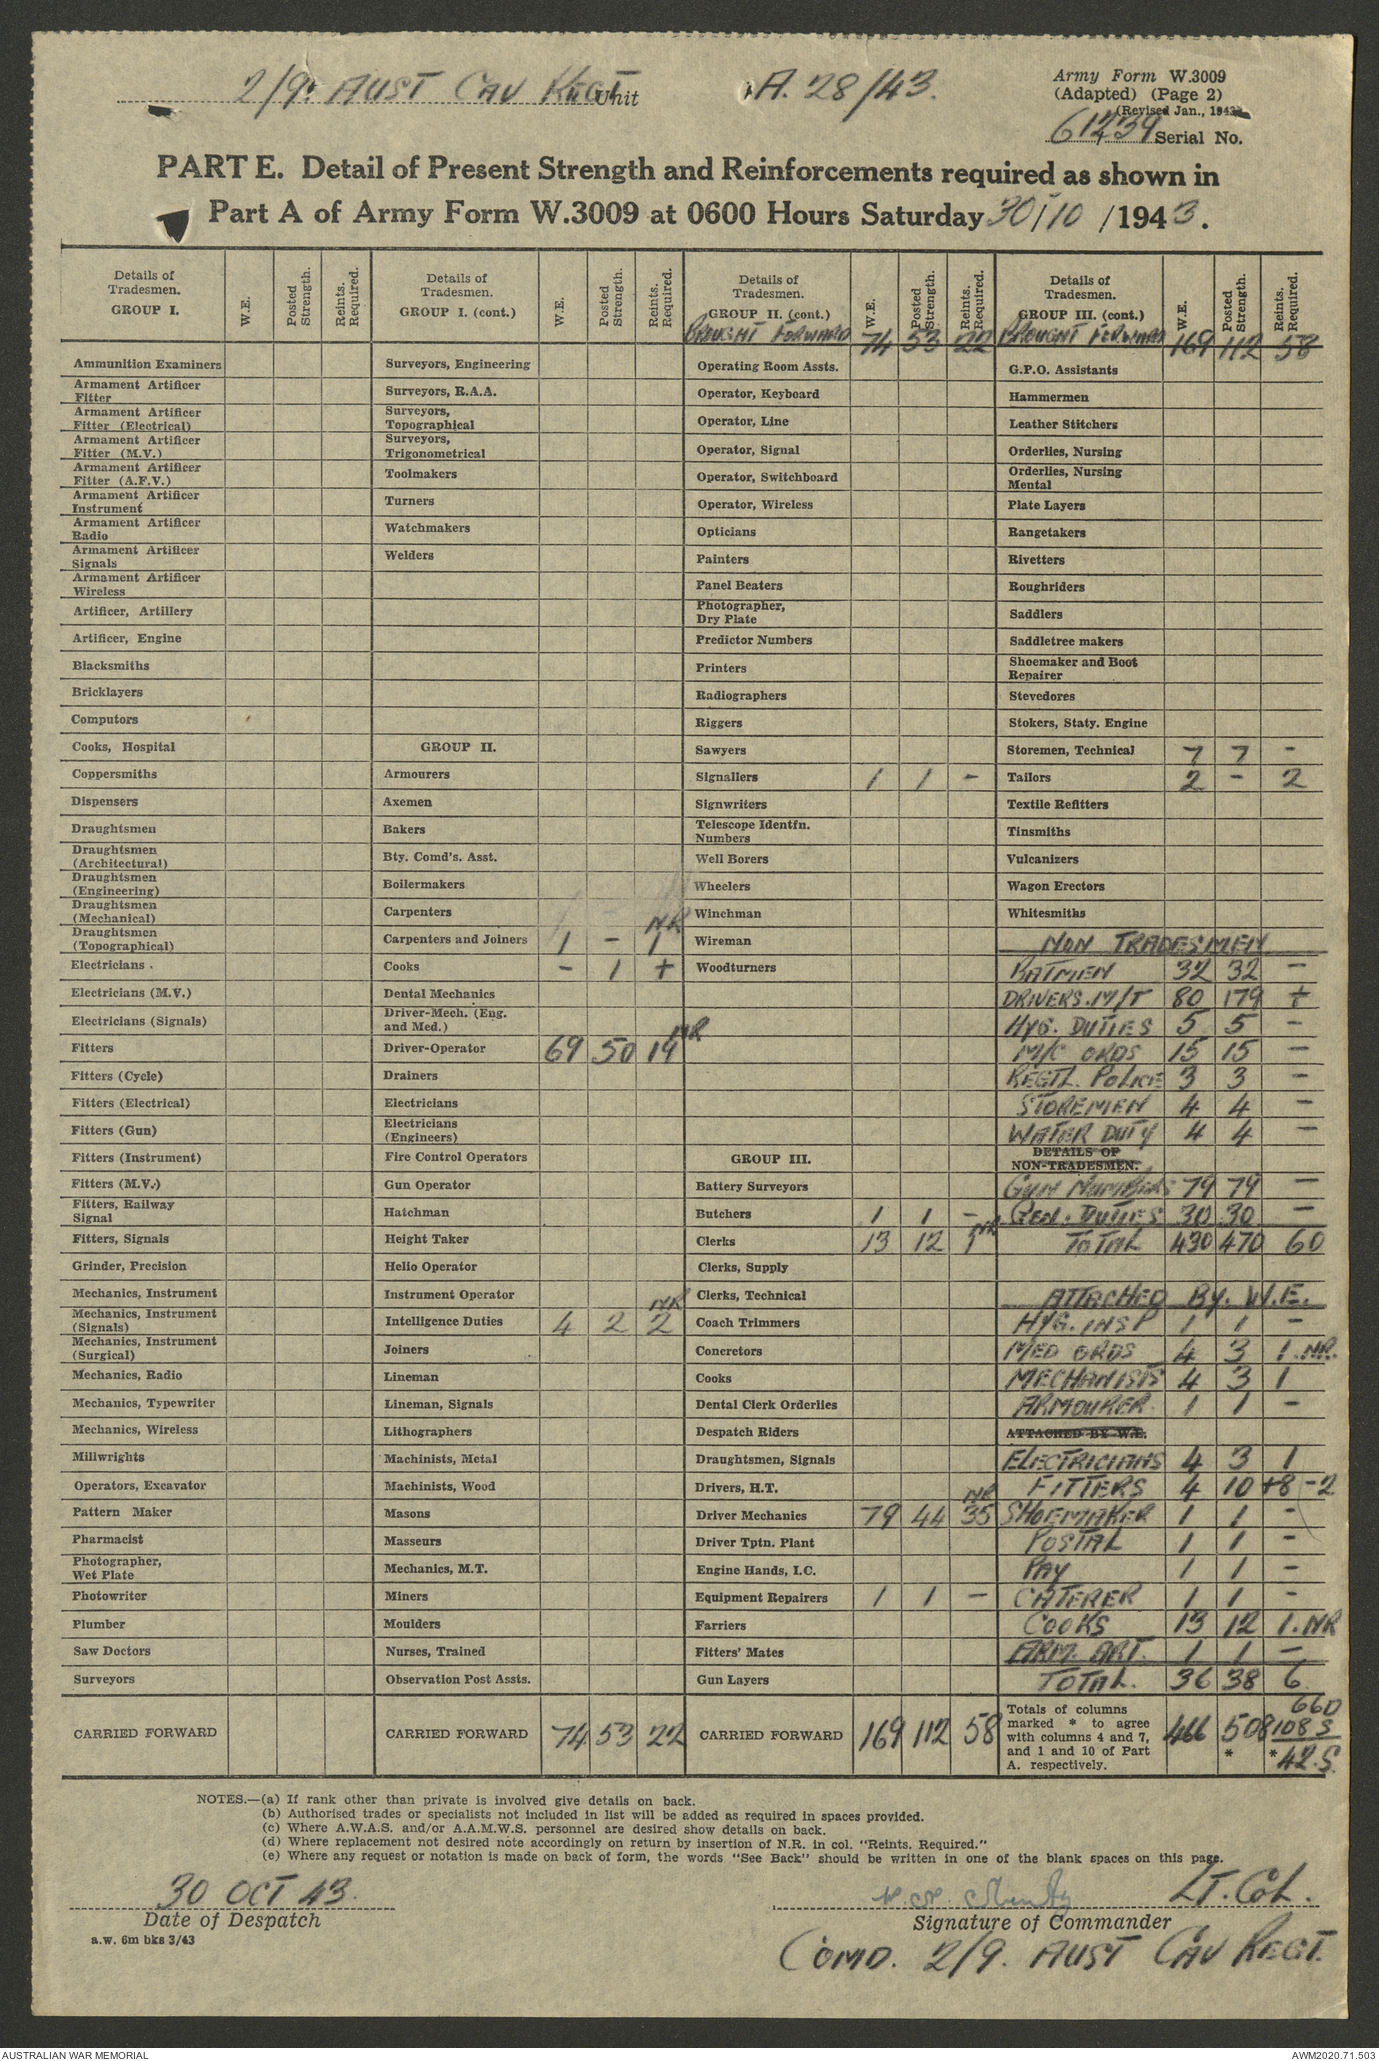 2/9. AUST CAV REGT Unit
A. 28/43.
Army Form W.3009
(Adapted) (Page 2)
(Revised Jan., 1943)
61239 Serial No.
PART E. Detail of Present Strength and Reinforcements required as shown in
Part A of Army Form W.3009 at 0600 Hours Saturday 30/10/1943.
Details of
Tradesmen.
GROUP I.
W.E.
Posted
Strength.
Reints.
Required.
Ammunition Examiners
Armament Artificer
Fitter
Armament Artificer
Fitter (Electrical)
Armament Artificer
Fitter (M.V.)
Armament Artificer
Fitter (A.F.V.)
Armament Artificer
Instrument
Armament Artificer
Radio
Armament Artificer
Signals
Armament Artificer
Wireless
Artificer, Artillery
Artificer, Engine
Blacksmiths
Bricklayers
Computors
Cooks, Hospital
Coppersmiths
Dispensers
Draughtsmen
Draughtsmen
(Architectural)
Draughtsmen
(Engineering)
Draughtsmen
(Mechanical)
Draughtsmen
(Topographical)
Electricians
Electricians (M.V.)
Electricians (Signals)
Fitters
Fitters (Cycle)
Fitters (Electrical)
Fitters (Gun)
Fitters (Instrument)
Fitters (M.V.)
Fitters, Railway
Signal
Fitters, Signals
Grinder, Precision
Mechanics, Instrument
Mechanics, Instrument
(Signals)
Mechanics, Instrument
(Surgical)
Mechanics, Radio
Mechanics, Typewriter
Mechanics, Wireless
Millwrights
Operators, Excavator
Pattern Maker
Pharmacist
Photographer,
Wet Plate
Photowriter
Plumber
Saw Doctors
Surveyors
CARRIED FORWARD
Details of
Tradesmen.
GROUP I. (cont.)
W.E.
Posted
Strength.
Reints.
Required.
Surveyors, Engineering
Surveyors, R.A.A.
Surveyors,
Topographical
Surveyors,
Trigonometrical
Toolmakers
Turners
Watchmakers
Welders
GROUP II.
Armourers
Axemen
Bakers
Bty. Comd's. Asst.
Boilermakers
Carpenters
Carpenters and Joiners 1 - 1 NR
Cooks - 1 +
Dental Mechanics
Driver-Mech. (Eng.
and Med.)
Driver-Operator 69 50 19 NR
Drainers
Electricians
Electricians
(Engineers)
Fire Control Operators
Gun Operator
Hatchman
Height Taker
Helio Operator
Instrument Operator
Intelligence Duties 4 2 2 NR
Joiners
Lineman
Lineman, Signals
Lithographers
Machinists, Metal
Machinists, Wood
Masons
Masseurs
Mechanics, M.T.
Miners
Moulders
Nurses, Trained
Observation Post Assts.
CARRIED FORWARD 74 53 22
Details of
Tradesmen.
GROUP II. (cont.)
W.E.
Posted
Strength.
Reints.
Required.
BROUGHT FORWARD 74 53 22
Operating Room Assts.
Operator, Keyboard
Operator, Line
Operator, Signal
Operator, Switchboard
Operator, Wireless
Opticians
Painters
Panel Beaters
Photographer,
Dry Plate
Predictor Numbers
Printers
Radiographers
Riggers
Sawyers
Signallers 1 1 -
Signwriters
Telescope Identfn.
Numbers
Well Borers
Wheelers
Winchman
Wireman
Woodturners
GROUP III.
Battery Surveyors
Butchers 1 1 -
Clerks 13 12 1 NR
Clerks, Supply
Clerks, Technical
Coach Trimmers
Concretors
Cooks
Dental Clerk Orderlies
Despatch Riders
Draughtsmen, Signals
Drivers, H.T.
Driver Mechanics 79 44 35 NR
Driver Tptn. Plant
Engine Hands, I.C.
Equipment Repairers 1 1 -
Farriers
Fitters' Mates
Gun Layers
CARRIED FORWARD 169 112 58
Details of
Tradesmen.
GROUP III. (cont.)
W.E.
Posted
Strength.
Reints.
Required.
BROUGHT FORWARD 169 112 58
G.P.O. Assistants
Hammermen
Leather Stitchers
Orderlies, Nursing
Orderlies, Nursing
Mental
Plate Layers
Rangetakers
Rivetters
Roughriders
Saddlers
Saddletree makers
Shoemaker and Boot
Repairer
Stevedores
Stokers, Staty. Engine
Storemen, Technical 7 7 -
Tailors 2 - 2
Textile Refitters
Tinsmiths
Vulcanizers
Wagon Erectors
Whitesmiths
NON TRADESMEN
BATMEN 32 32 -
DRIVERS. M/T 80 179 +
HYG. DUTIES 5 5 -
M/C ORDS 15 15 -
REGTL. POLICE 3 3 -
STOREMEN 4 4 -
WATER DUTY 4 4 -
DETAILS OF
NON-TRADESMEN.
GUN NUMBERS 79 79 -
GEN. DUTIES 30 30 -
TOTAL 430 470 60
ATTACHED BY. W.E.
HYG. INSP 1 1 -
MED ORDS 4 3 1. NR.
MECHANISTS 4 3 1
ARMOURER. 1 1 -
ATTACHED BY W.E.
ELECTRICIANS 4 3 1
FITTERS 4 10 +8 -2
SHOEMAKER 1 1 -
POSTAL 1 1 -
PAY 1 1 -
CATERER 1 1 -
COOKS 13 12 1. NR
ARM. ART. 1 1 -
TOTAL. 36 38 6
Totals of columns
marked * to agree
with columns 4 and 7,
and 1 and 10 of Part
A. respectively.
466 508 * 66D
108 S
* 42. S.
NOTES.—(a) If rank other than private is involved give details on back.
(b) Authorised trades or specialists not included in list will be added as required in spaces provided.
(c) Where A.W.A.S. and/or A.A.M.W.S. personnel are desired show details on back.
(d) Where replacement not desired note accordingly on return by insertion of N.R. in col. "Reints. Required."
(e) Where any request or notation is made on back of form, the words "See Back" should be written in one of the blank spaces on this page.
30 OCT 43.
Date of Despatch
a.w. 6m bks 3/43
LT. COL.
Signature of Commander
COMD. 2/9. AUST CAV REGT.
AUSTRALIAN WAR MEMORIAL
AWM2020.71.503